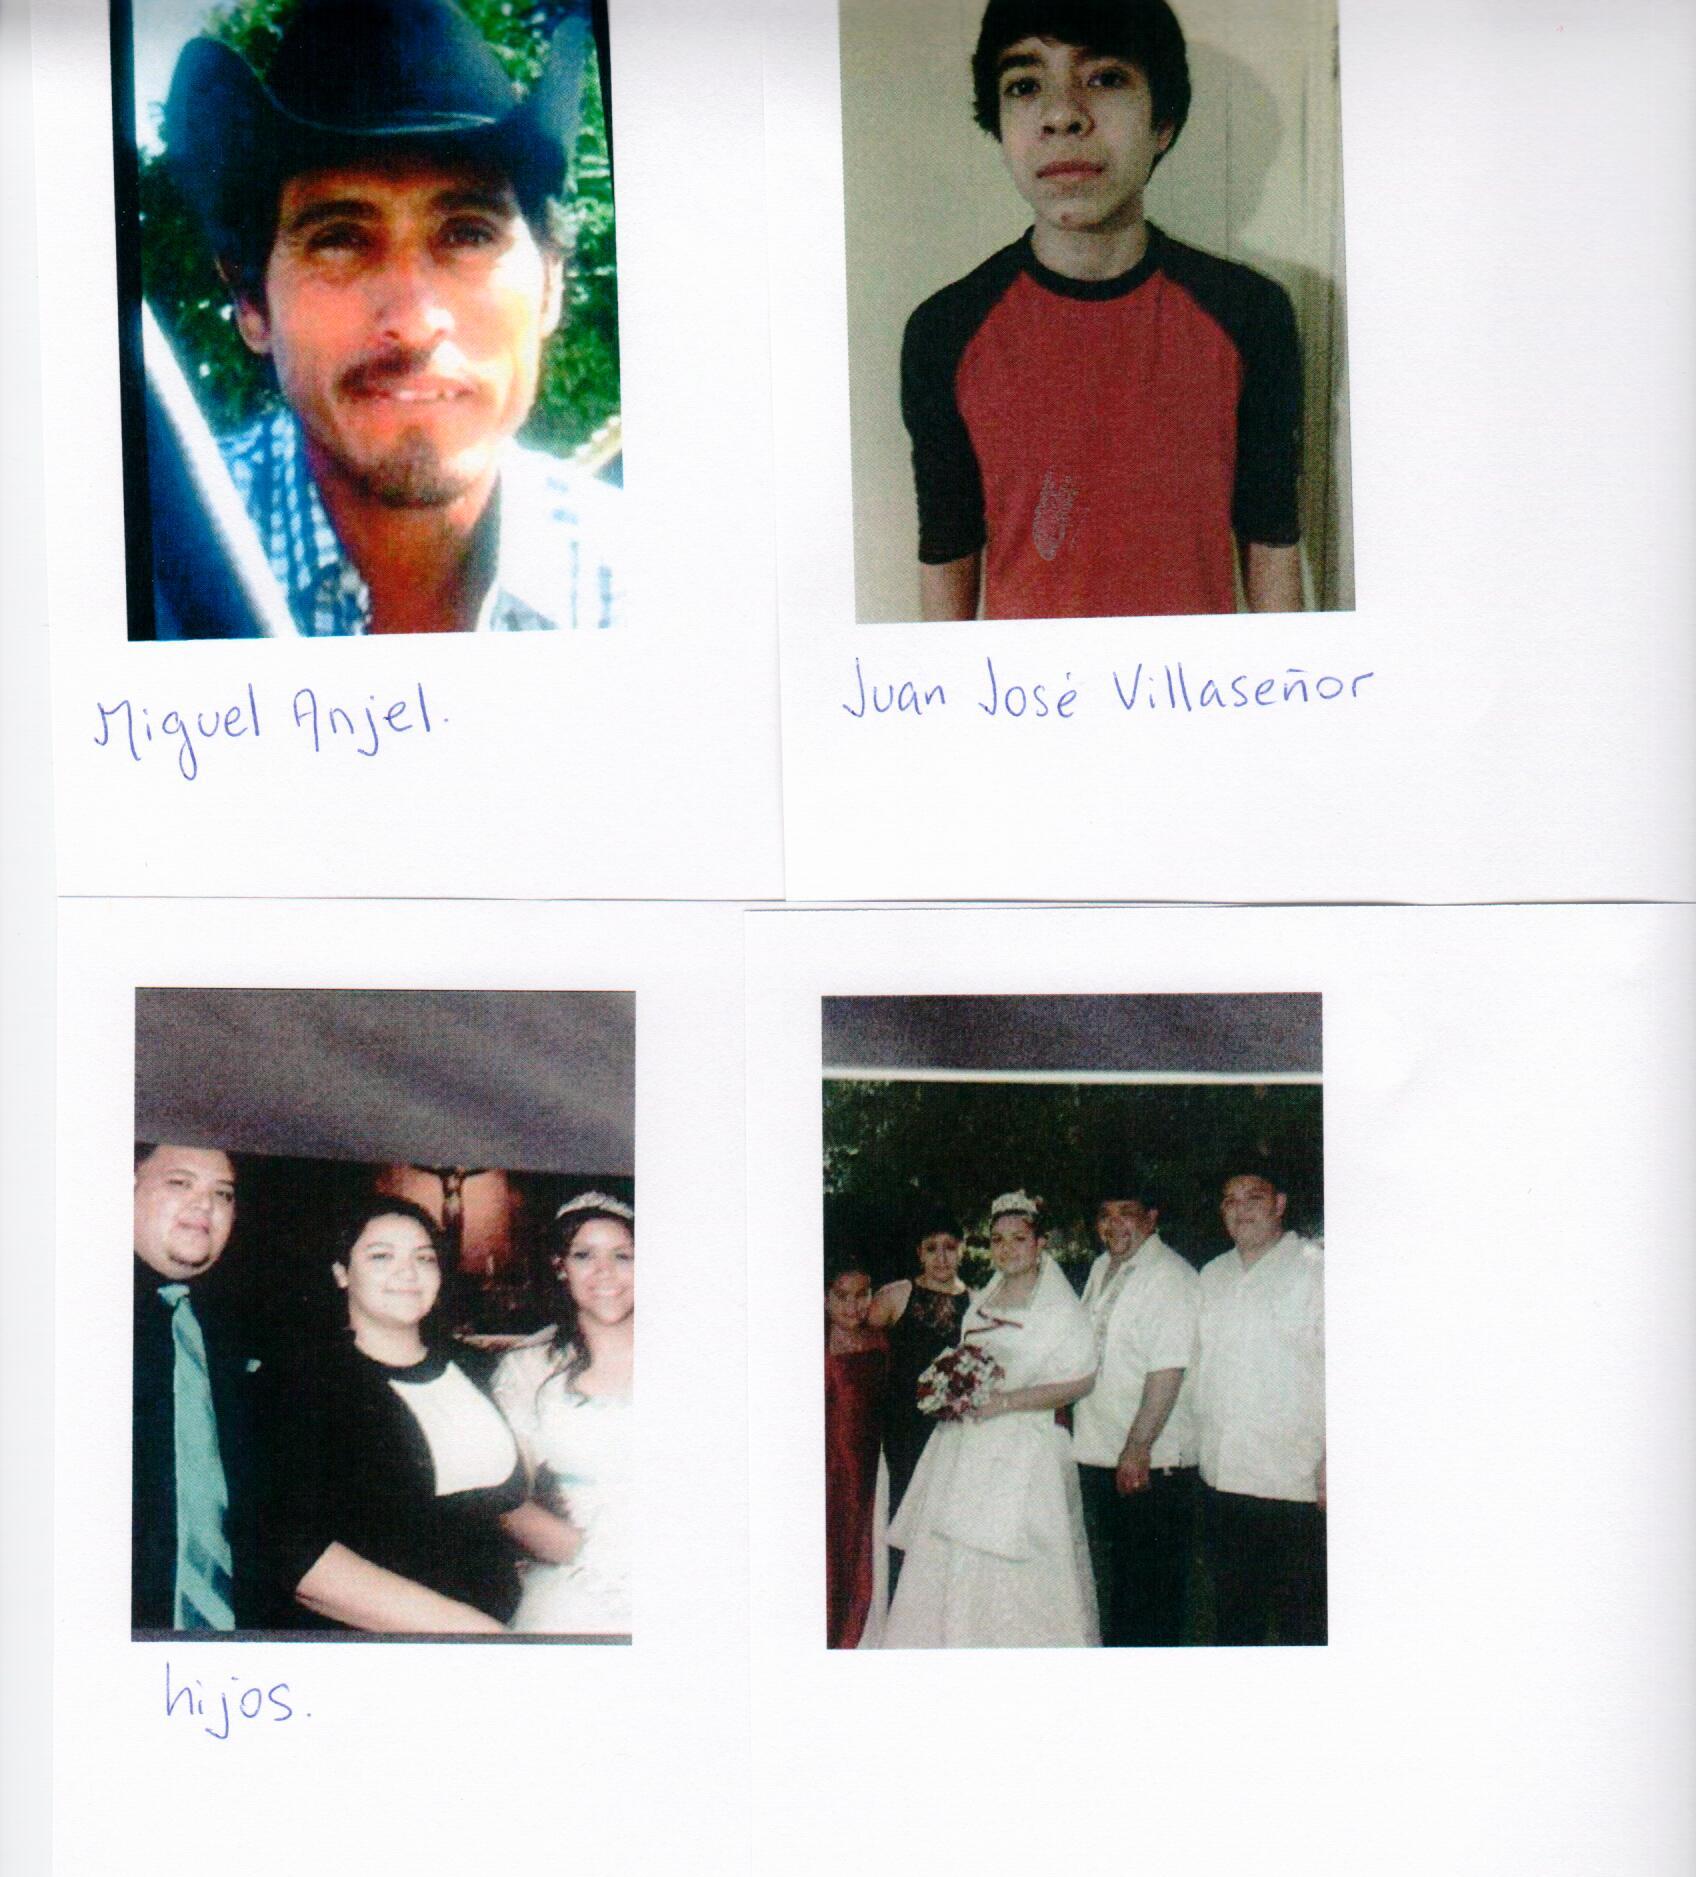 Miguel Anjel.
Juan José Villaseñor
hijos.